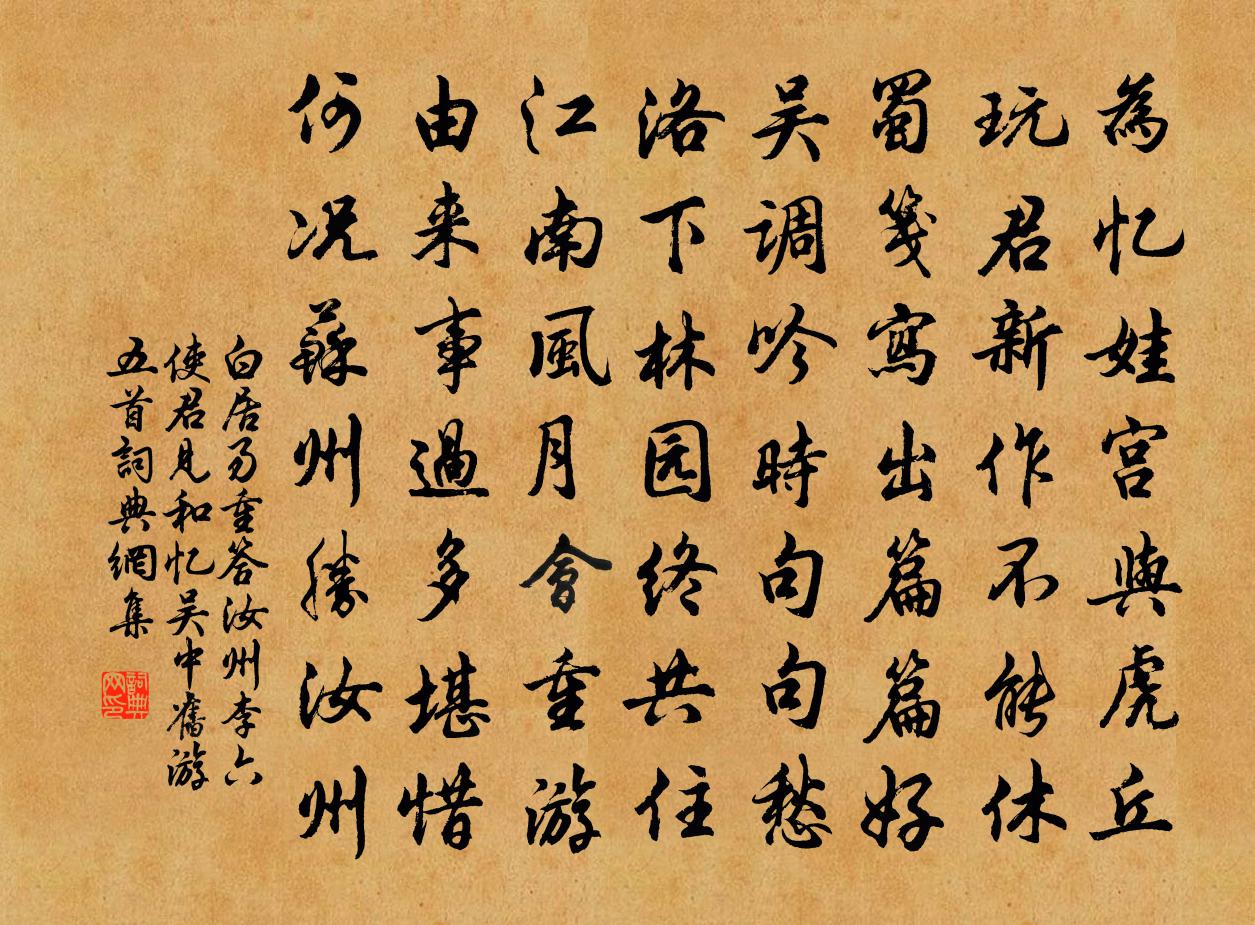 為忆娃宫與虎丘
玩君新作不能休
蜀箋寫出篇篇好
吴調吟時句句愁
洛下林园终共住
江南風月會重游
由来事過多堪惜
何况蘇州勝汝州
白居易重答汝州李六
使君見和忆吴中舊游
五首詞典網集
詞典网印